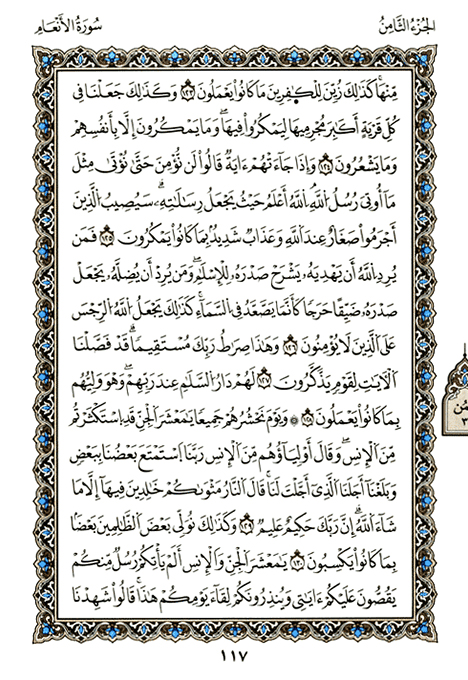 الجزء الثامن
سورة الأنعام
مِّنْهَا كَذَٰلِكَ زُيِّنَ لِلْكَٰفِرِينَ مَا كَانُوا۟ يَعْمَلُونَ ١٢٣ وَكَذَٰلِكَ جَعَلْنَا فِى
كُلِّ قَرْيَةٍ أَكَٰبِرَ مُجْرِمِيهَا لِيَمْكُرُوا۟ فِيهَا وَمَا يَمْكُرُونَ إِلَّا بِأَنفُسِهِمْ
وَمَا يَشْعُرُونَ ١٢٤ وَإِذَا جَآءَتْهُمْ ءَايَةٌ قَالُوا۟ لَن نُّؤْمِنَ حَتَّىٰ نُؤْتَىٰ مِثْلَ
مَآ أُوتِىَ رُسُلُ ٱللَّهِ ٱللَّهُ أَعْلَمُ حَيْثُ يَجْعَلُ رِسَٰلَٰتِهِۦ سَيُصِيبُ ٱلَّذِينَ
أَجْرَمُوا۟ صَغَارٌ عِندَ ٱللَّهِ وَعَذَابٌ شَدِيدٌۢ بِمَا كَانُوا۟ يَمْكُرُونَ ١٢٥ فَمَن
يُرِدِ ٱللَّهُ أَن يَهْدِيَهُۥ يَشْرَحْ صَدْرَهُۥ لِلْإِسْلَٰمِ وَمَن يُرِدْ أَن يُضِلَّهُۥ يَجْعَلْ
صَدْرَهُۥ ضَيِّقًا حَرَجًا كَأَنَّمَا يَصَّعَّدُ فِى ٱلسَّمَآءِ كَذَٰلِكَ يَجْعَلُ ٱللَّهُ ٱلرِّجْسَ
عَلَى ٱلَّذِينَ لَا يُؤْمِنُونَ ١٢٦ وَهَٰذَا صِرَٰطُ رَبِّكَ مُسْتَقِيمًا قَدْ فَصَّلْنَا
ٱلْءَايَٰتِ لِقَوْمٍ يَذَّكَّرُونَ ١٢٧ لَهُمْ دَارُ ٱلسَّلَٰمِ عِندَ رَبِّهِمْ وَهْوَ وَلِيُّهُم
بِمَا كَانُوا۟ يَعْمَلُونَ ١٢٨ ۞ وَيَوْمَ نَحْشُرُهُمْ جَمِيعًا يَٰمَعْشَرَ ٱلْجِنِّ قَدِ ٱسْتَكْثَرْتُم
مِّنَ ٱلْإِنسِ وَقَالَ أَوْلِيَآؤُهُم مِّنَ ٱلْإِنسِ رَبَّنَا ٱسْتَمْتَعَ بَعْضُنَا بِبَعْضٍ
وَبَلَغْنَآ أَجَلَنَا ٱلَّذِىٓ أَجَّلْتَ لَنَا قَالَ ٱلنَّارُ مَثْوَىٰكُمْ خَٰلِدِينَ فِيهَآ إِلَّا مَا
شَآءَ ٱللَّهُ إِنَّ رَبَّكَ حَكِيمٌ عَلِيمٌ ١٢٩ وَكَذَٰلِكَ نُوَلِّى بَعْضَ ٱلظَّٰلِمِينَ بَعْضًۢا
بِمَا كَانُوا۟ يَكْسِبُونَ ١٣٠ يَٰمَعْشَرَ ٱلْجِنِّ وَٱلْإِنسِ أَلَمْ يَأْتِكُمْ رُسُلٌ مِّنكُمْ
يَقُصُّونَ عَلَيْكُمْ ءَايَٰتِى وَيُنذِرُونَكُمْ لِقَآءَ يَوْمِكُمْ هَٰذَا قَالُوا۟ شَهِدْنَا
١١٧